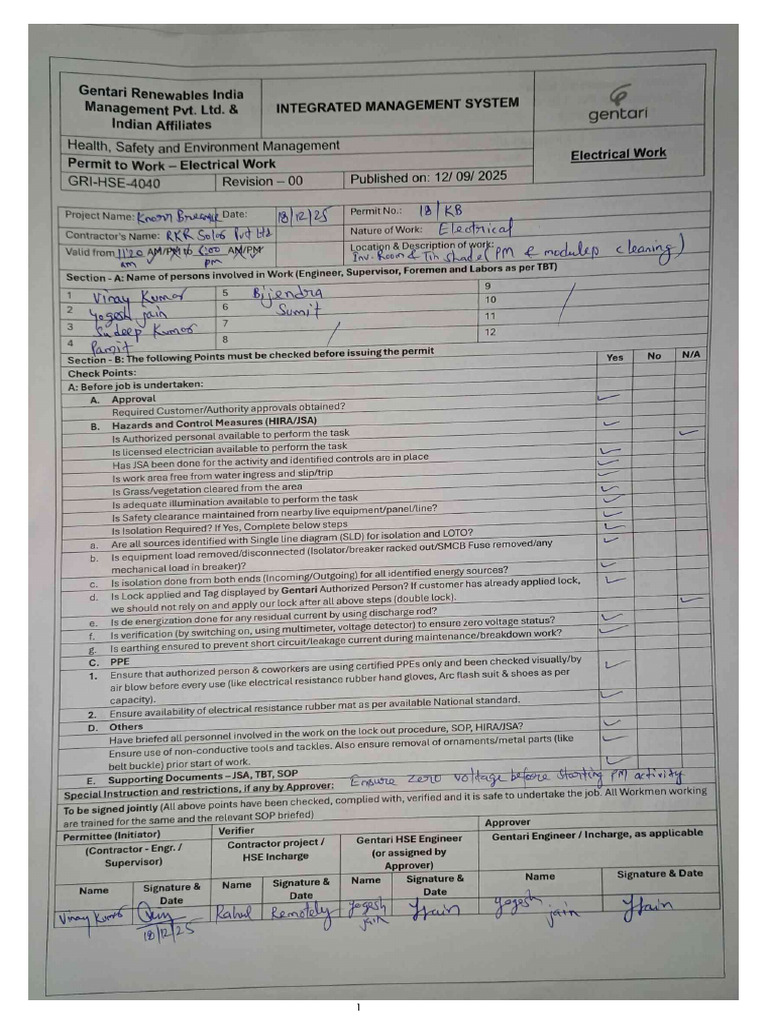 Gentari Renewables India
Management Pvt. Ltd. &
Indian Affiliates
INTEGRATED MANAGEMENT SYSTEM
gentari
Health, Safety and Environment Management
Permit to Work – Electrical Work
Electrical Work
GRI-HSE-4040 Revision – 00 Published on: 12/ 09/ 2025
Project Name: Knorr Date: 18/12/25 Permit No.: 18/KB
Contractor's Name: RKR Solar Pvt Ltd Nature of Work: Electrical
Valid from 11:20 AM/PM to 6:00 AM/PM Location & Description of work:
am pm Inv. Room & Tin Shade (PM & module cleaning)
Section - A: Name of persons involved in Work (Engineer, Supervisor, Foremen and Labors as per TBT)
1 Vinay Kumar 5 Bijendra 9
2 Yogesh jain 6 Sumit 10
3 Sudeep Kumar 7 11
4 8 12
Section - B: The following Points must be checked before issuing the permit
Check Points: Yes No N/A
A: Before job is undertaken:
A. Approval
Required Customer/Authority approvals obtained?
B. Hazards and Control Measures (HIRA/JSA)
Is Authorized personal available to perform the task
Is licensed electrician available to perform the task
Has JSA been done for the activity and identified controls are in place
Is work area free from water ingress and slip/trip
Is Grass/vegetation cleared from the area
Is adequate illumination available to perform the task
Is Safety clearance maintained from nearby live equipment/panel/line?
Is Isolation Required? If Yes, Complete below steps
a. Are all sources identified with Single line diagram (SLD) for isolation and LOTO?
b. Is equipment load removed/disconnected (Isolator/breaker racked out/SMCB Fuse removed/any
mechanical load in breaker)?
c. Is isolation done from both ends (Incoming/Outgoing) for all identified energy sources?
d. Is Lock applied and Tag displayed by Gentari Authorized Person? If customer has already applied lock,
we should not rely on and apply our lock after all above steps (double lock).
e. Is de energization done for any residual current by using discharge rod?
f. Is verification (by switching on, using multimeter, voltage detector) to ensure zero voltage status?
g. Is earthing ensured to prevent short circuit/leakage current during maintenance/breakdown work?
C. PPE
1. Ensure that authorized person & coworkers are using certified PPEs only and been checked visually/by
air blow before every use (like electrical resistance rubber hand gloves, Arc flash suit & shoes as per
capacity).
2. Ensure availability of electrical resistance rubber mat as per available National standard.
D. Others
Have briefed all personnel involved in the work on the lock out procedure, SOP, HIRA/JSA?
Ensure use of non-conductive tools and tackles. Also ensure removal of ornaments/metal parts (like
belt buckle) prior start of work.
E. Supporting Documents – JSA, TBT, SOP
Special Instruction and restrictions, if any by Approver: Ensure zero voltage before starting PM activity
To be signed jointly (All above points have been checked, complied with, verified and it is safe to undertake the job. All Workmen working
are trained for the same and the relevant SOP briefed)
Permittee (Initiator) Verifier Approver
(Contractor - Engr. /
Supervisor)
Contractor project /
HSE Incharge
Gentari HSE Engineer
(or assigned by
Approver)
Gentari Engineer / Incharge, as applicable
Name Signature & Date Name Signature & Date Name Signature & Date Name Signature & Date
Vinay Kumar Rahul Remotely Yogesh jain YJain Yogesh jain YJain
18/12/25
1